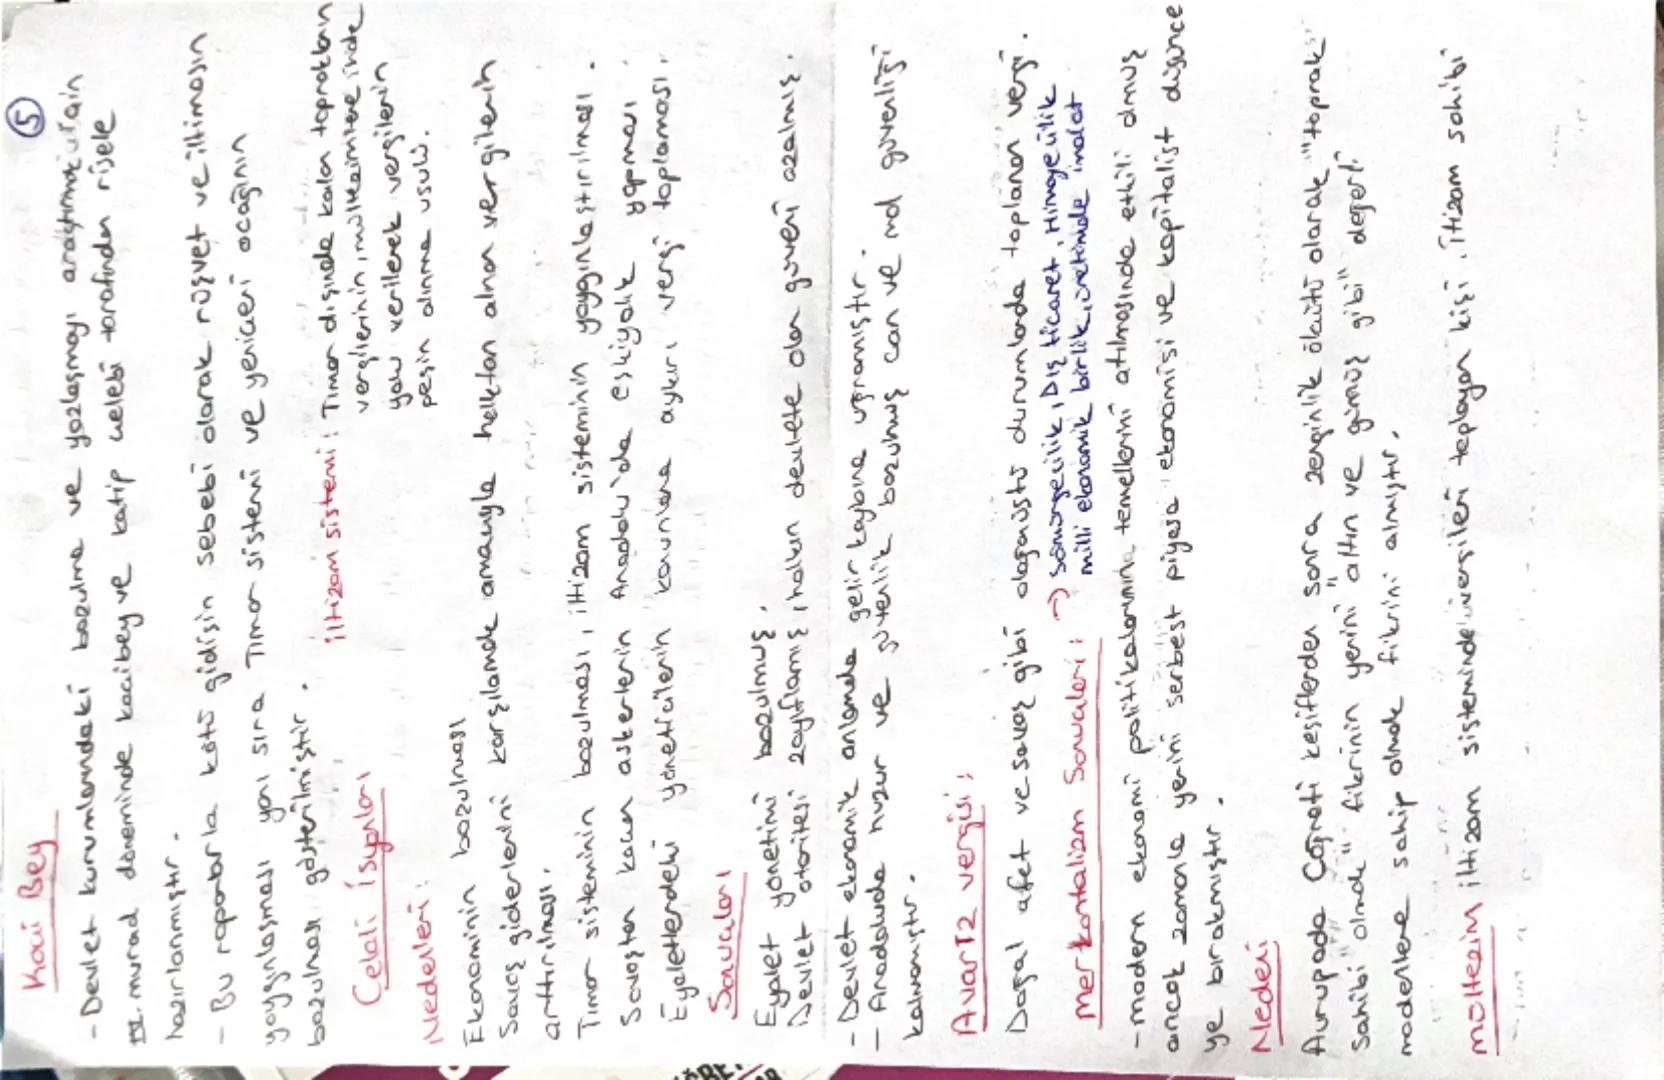 5
Koçi Bey
- Devlet kurumlarındaki bozulma ve yozlaşmayı
IV. murad döneminde kocibey ve katip çelebi tarafından risele
hazırlanmıştır.
- Bu raporlarla kötü gidişin sebebi olarak rüşvet ve iltimasın
yaygınlaşması yanı sıra Timar sistemi ve yeniçeri ocağının
bozulması gösterilmiştir.
iltizam sistemi: Timar dışında kalan topraktan
vergilerinin, mültezimlere ihale
yolu verilerek vergilerin
peşin alınma usulü.
Celali İsyanları
Nedenleri:
Ekonominin bozulması
Savaş giderlerini karşılamak amacıyla halktan alınan vergilerin
arttırılması.
Timar sisteminin bozulması, iltizam sisteminin yaygınlaştırılması.
Savaştan kaçan askerlerin Anadolu'da eşkiyalık yapması.
Eyaletlerdeki yöneticilerin kanunlara aykırı vergi toplaması.
Sonuçları
Eyalet yönetimi bozulmuş.
Devlet otoritesi zayıflamış, halkın devlete olan güveni azalmış.
- Devlet ekonomik anlamda gelir kaybına uğramıştır.
- Anadoluda huzur ve güvenlik bozulmuş can ve mal güvenliği
kalmamıştır.
Avarız vergisi:
Doğal afet ve savaş gibi olağanüstü durumlarda toplanan vergi.
Merkantalizm Sonuçları: → sömürgecilik, Dış ticaret, Himayecilik
milli ekonomik birlik, üretimde imalat
- modern ekonomi politikalarının temellerini atılmasında etkili olmuş
ancak zamanla yerini serbest piyasa ekonomisi ve kapitalist düşünce
ye bırakmıştır.
Nedeni
Avrupada Coğrafi keşiflerden sonra zenginlik ölçütü olarak "toprak
Sahibi olmak" fikrinin yerini "altın ve gümüş gibi" değerli
madenlere sahip olmak fikrini almıştır.
mültezim iltizam sisteminde vergileri toplayan kişi. iltizam sahibi